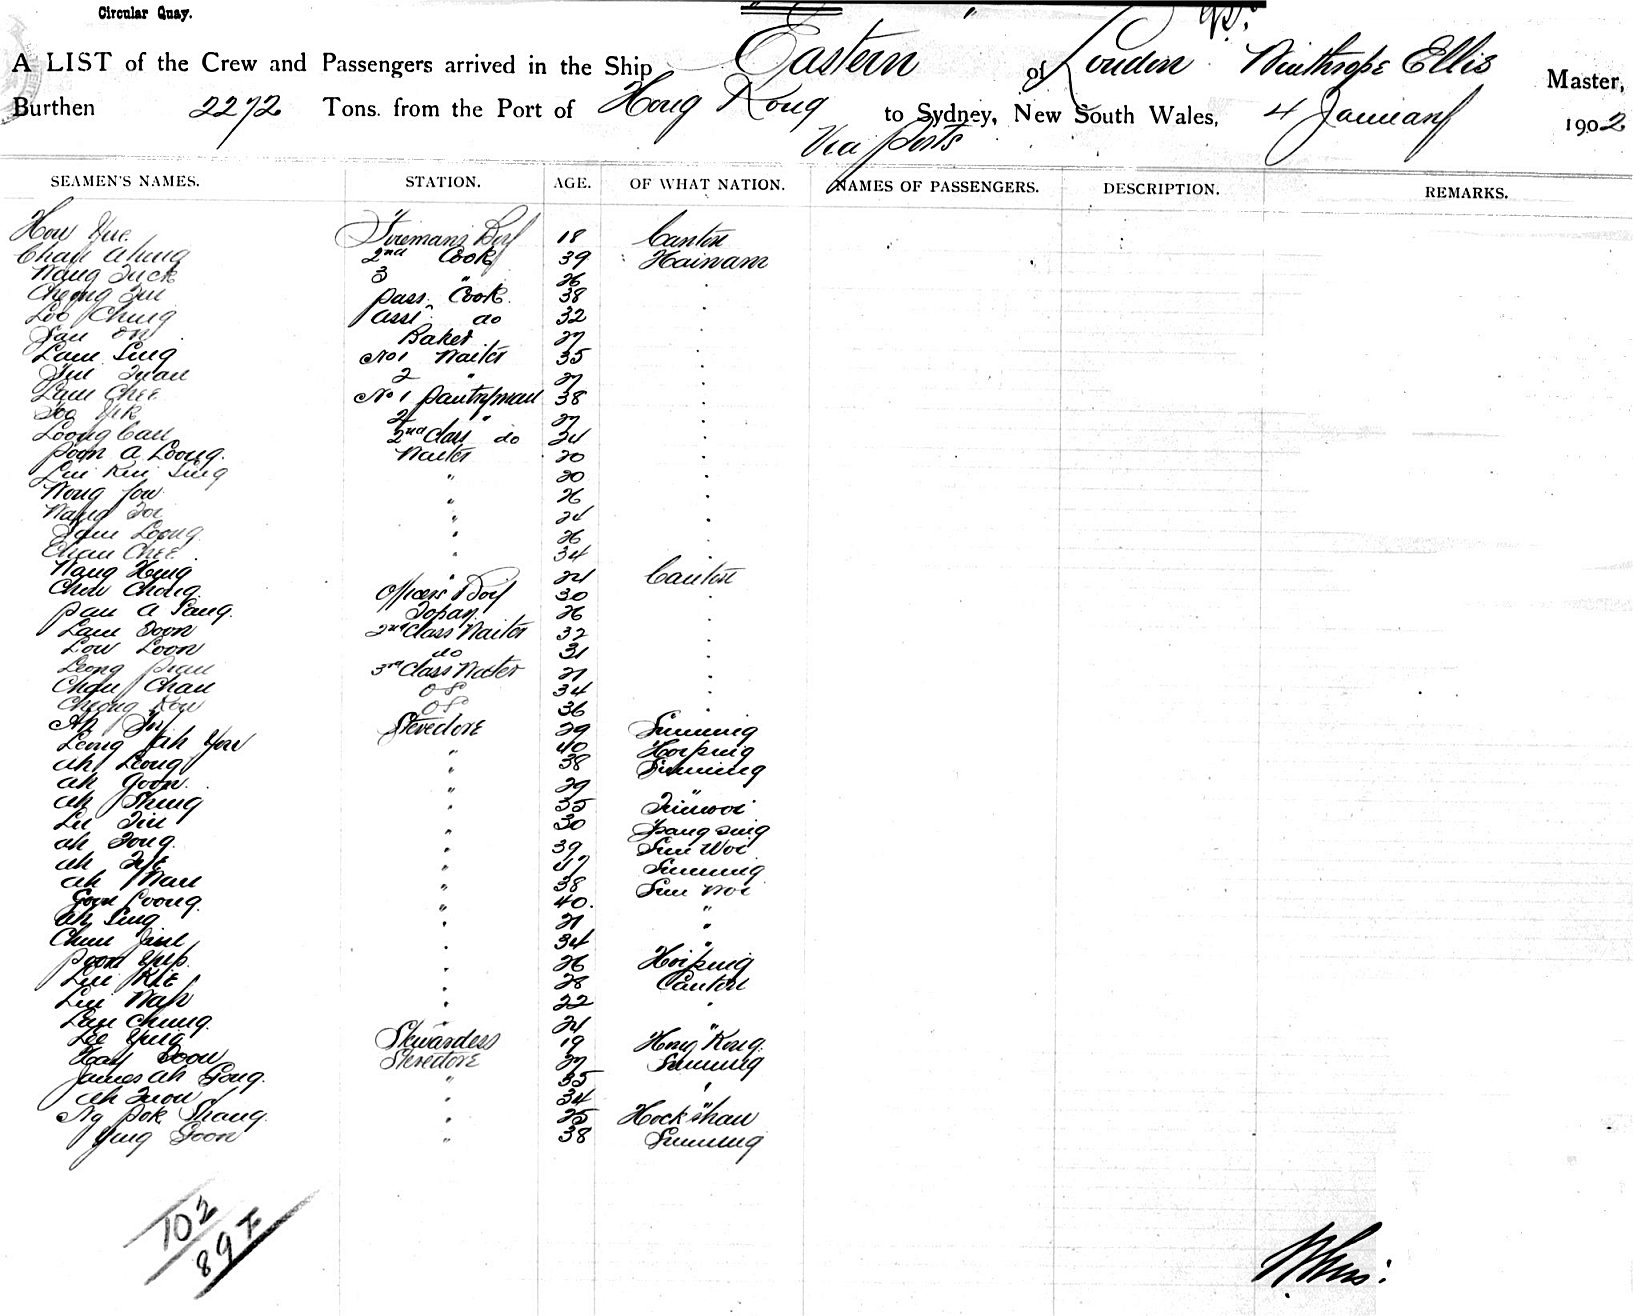 Circular Quay.
A LIST of the Crew and Passengers arrived in the Ship Eastern of London Winthrope Ellis Master,
Burthen 2272 Tons. from the Port of Hong Kong to Sydney, New South Wales, 4 January 1902
Via Ports
SEAMEN'S NAMES. STATION. AGE. OF WHAT NATION. NAMES OF PASSENGERS. DESCRIPTION. REMARKS.
How Yue Firemans Boy 18 Canton
Chan Ahung 2nd Cook 39 Hainam
Wang Tuck 3 " 26
Cheong Tui Pass. Cook 38
Loo Ching Asst do 32
Baker 27
Lam Sing No 1 Waiter 35
2 " 27
Lam Chee No 1 Pantryman 38
Too Yik 2 " 27
Loong Can 2nd Class do 34
Poon A Loong. Waiter 20
Lui Kui Sing " 20
Wong Yow " 26
Wang Toi " 24
Sam Loong " 26
Chan Chee " 34
Wang Hing " 24 Canton
Chow Chong Officers Boy 30
Pan A Sang. Topan. 26
Lam Soon 2nd Class Waiter 32
Low Loon do 31
Leong 3rd Class Waiter 21
Chan Chan 34
Cheong Kow 36
Ah Stevedore 29 Sunning
Leong Ah You " 40 Hoiping
Ah Leong " 38 Sunning
Ah Goon " 29 "
Ah Shing " 35 Sunwoi
30
Ah Tong " 39 Sun Woi
Ah " 47 Sunning
Ah Man " 38 Sun Woi
Goon Loong " 40. "
Ah Sing " 21 "
Chun 34 "
Poon Yup 26 Hoiping
Lui Kie 28 Canton
Lui Wah 22
Lau Chung 24 "
Lee Ying Stewardess 19 Hong Kong.
Hay Soon Stevedore 27 Sunning
James Ah Gong. " 35 "
Ah " 34 "
Ng Pok Shang. 25 Hockshan
Ying Goon " 38 Sunning
102
89